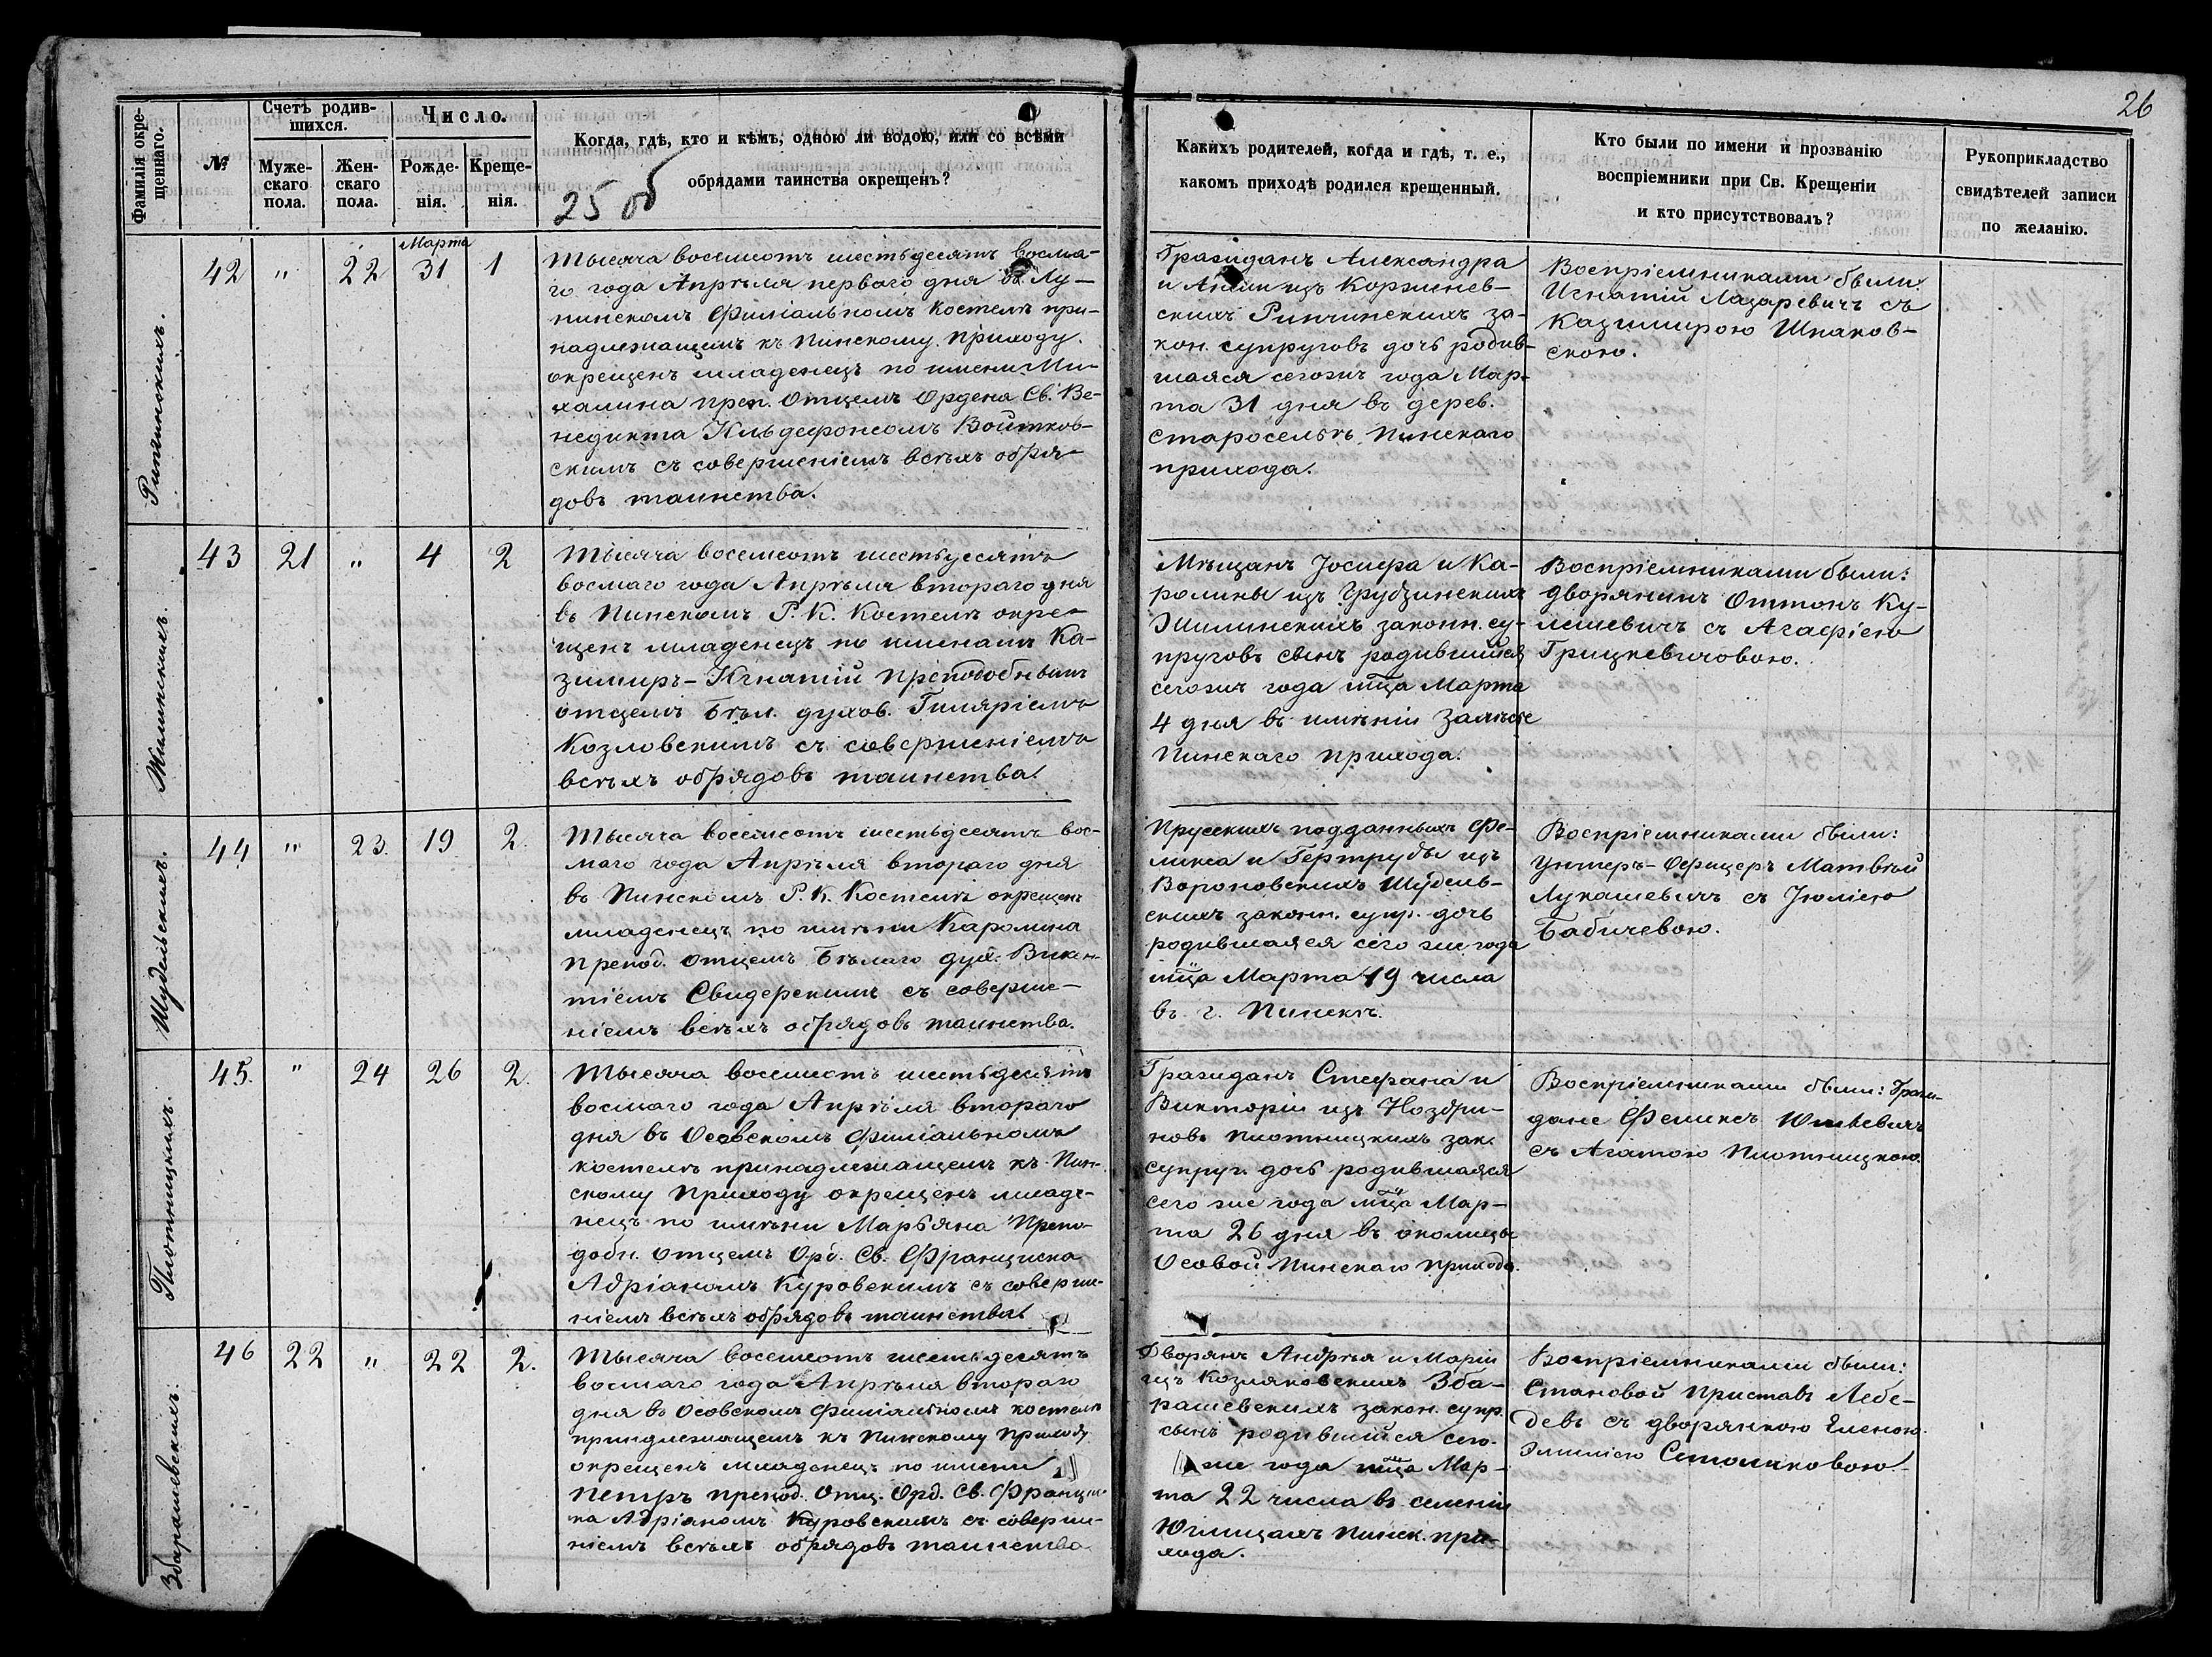 26
Фамилія окре-
щеннаго.
№
Счетъ родив-
шихся.
Муже-
скаго
пола.
Жен-
скаго
пола.
Число.
Рожде-
нія.
Креще-
нія.
Когда, гдѣ, кто и кѣмъ, одною ли водою, или со всѣми
обрядами таинства окрещенъ?
25 об
Какихъ родителей, когда и гдѣ, т. е.,
какомъ приходѣ родился крещенный.
Кто были по имени и прозванію
воспріемники при Св. Крещеніи
и кто присутствовалъ?
Рукоприкладство
свидѣтелей записи
по желанію.
42 " 22 Марта 31 1
Тысяча восемсотъ шестьдесятъ восма-
го года Апрѣля перваго дня въ Лу-
нинскомъ Филіальномъ Костелѣ при-
надлежащемъ къ Пинскому Приходу
окрещенъ младенецъ по имени Ми-
халина преп. Отцемъ Ордена Св. Бе-
недикта Ильдефонсомъ Войтков-
скимъ съ совершеніемъ всѣхъ обря-
довъ таинства.
Гражданъ Александра
и Анны изъ Коржинев-
скихъ Рипчинскихъ за-
кон. супруговъ дочь родив-
шаяся сегожъ года Мар-
та 31 дня въ дерев.
Староселье Пинскаго
прихода.
Воспріемниками были:
Игнатій Лазаревичъ съ
Казимирою Шпаков-
скою.
Жилинскихъ.
43 21 " 4 2
Тысяча восемсотъ шестьдесятъ
восмаго года Апрѣля втораго дня
въ Пинскомъ Р. К. Костелѣ окре-
щенъ младенецъ по именамъ Ка-
зимиръ-Игнатій Преподобнымъ
отцемъ Бѣл. духов. Гиляріемъ
Козловскимъ съ совершеніемъ
всѣхъ обрядовъ таинства.
Мѣщанъ Іосифа и Ка-
ролины изъ Грудзинскихъ
Жилинскихъ законн. су-
пруговъ сынъ родившійся
сегожъ года мца Марта
4 дня въ имѣніи Залѣсье
Пинскаго прихода.
Воспріемниками были:
Дворянинъ Оттонъ Ку-
лешевичъ съ Агафіею
Грицкевичовою.
Шудельскихъ.
44 " 23. 19 2.
Тысяча восемсотъ шестьдесятъ вос-
маго года Апрѣля втораго дня
въ Пинскомъ Р. К. Костелѣ окрещенъ
младенецъ по имени Каролина
Препод. отцемъ Бѣлаго дух. Викен-
тіемъ Свидерскимъ съ соверше-
ніемъ всѣхъ обрядовъ таинства.
Прусскихъ подданныхъ Фе-
ликса и Гертруды изъ
Вороновскихъ Шудель-
скихъ законн. супр. дочь
родившаяся сего же года
мца Марта 19 числа
въ г. Пинскѣ.
Воспріемниками были:
Унтеръ-Офицеръ Матвѣй
Лукашевичъ съ Юліею
Бабичевою.
Плотницкихъ.
45. " 24 26 2.
Тысяча восемсотъ шестьдесятъ
восмаго года Апрѣля втораго
дня въ Осовскомъ Филіальномъ
костелѣ принадлежащемъ къ Пин-
скому Приходу окрещенъ младе-
нецъ по имѣни Марьяна Препо-
добн. отцемъ Орд. Св. Франциска
Адріаномъ Куровскимъ съ соверше-
ніемъ всѣхъ обрядовъ таинства.
Гражданъ Стефана и
Викторіи изъ Ноздри-
новъ Плотницкихъ зак.
супруг. дочь родившаяся
сего же года мца Мар-
та 26 дня въ околицы
Осовой Пинскаго прихода.
Воспріемниками были: Граж-
дане Феликсъ
съ Агатою Плотницкою.
Збарашевскихъ.
46 22 " 22 2.
Тысяча восемсотъ шестьдесятъ
восмаго года Апрѣля втораго
дня въ Осовскомъ Филіальномъ костелѣ
принадлежащемъ къ Пинскому Приходу
окрещенъ младенецъ по имени
Петръ препод. Отц. Орд. Св. Францис-
ка Адріаномъ Куровскимъ съ соверше-
ніемъ всѣхъ обрядовъ таинства
Дворянъ Андрея и Маріи
изъ Козляковскихъ Зба-
рашевскихъ закон. супр.
сынъ родившійся сего
же года мца Мар-
та 22 числа въ селеніи
Пинск. при-
хода.
Воспріемниками были:
Становой Приставъ Лебе-
девъ съ дворянкою Еленою
Эмиліею Стомаковою.